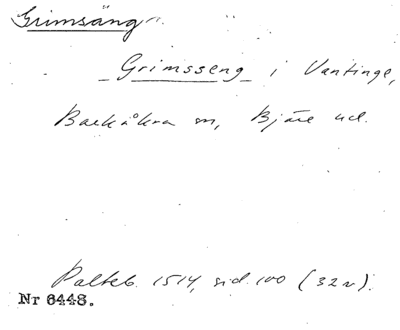 Grimsäng
Grimsseng i Vantinge,
Barkåkra sn, Bjäre hd.
Palteb. 1514, sid. 100 (32v).
Nr 6448.